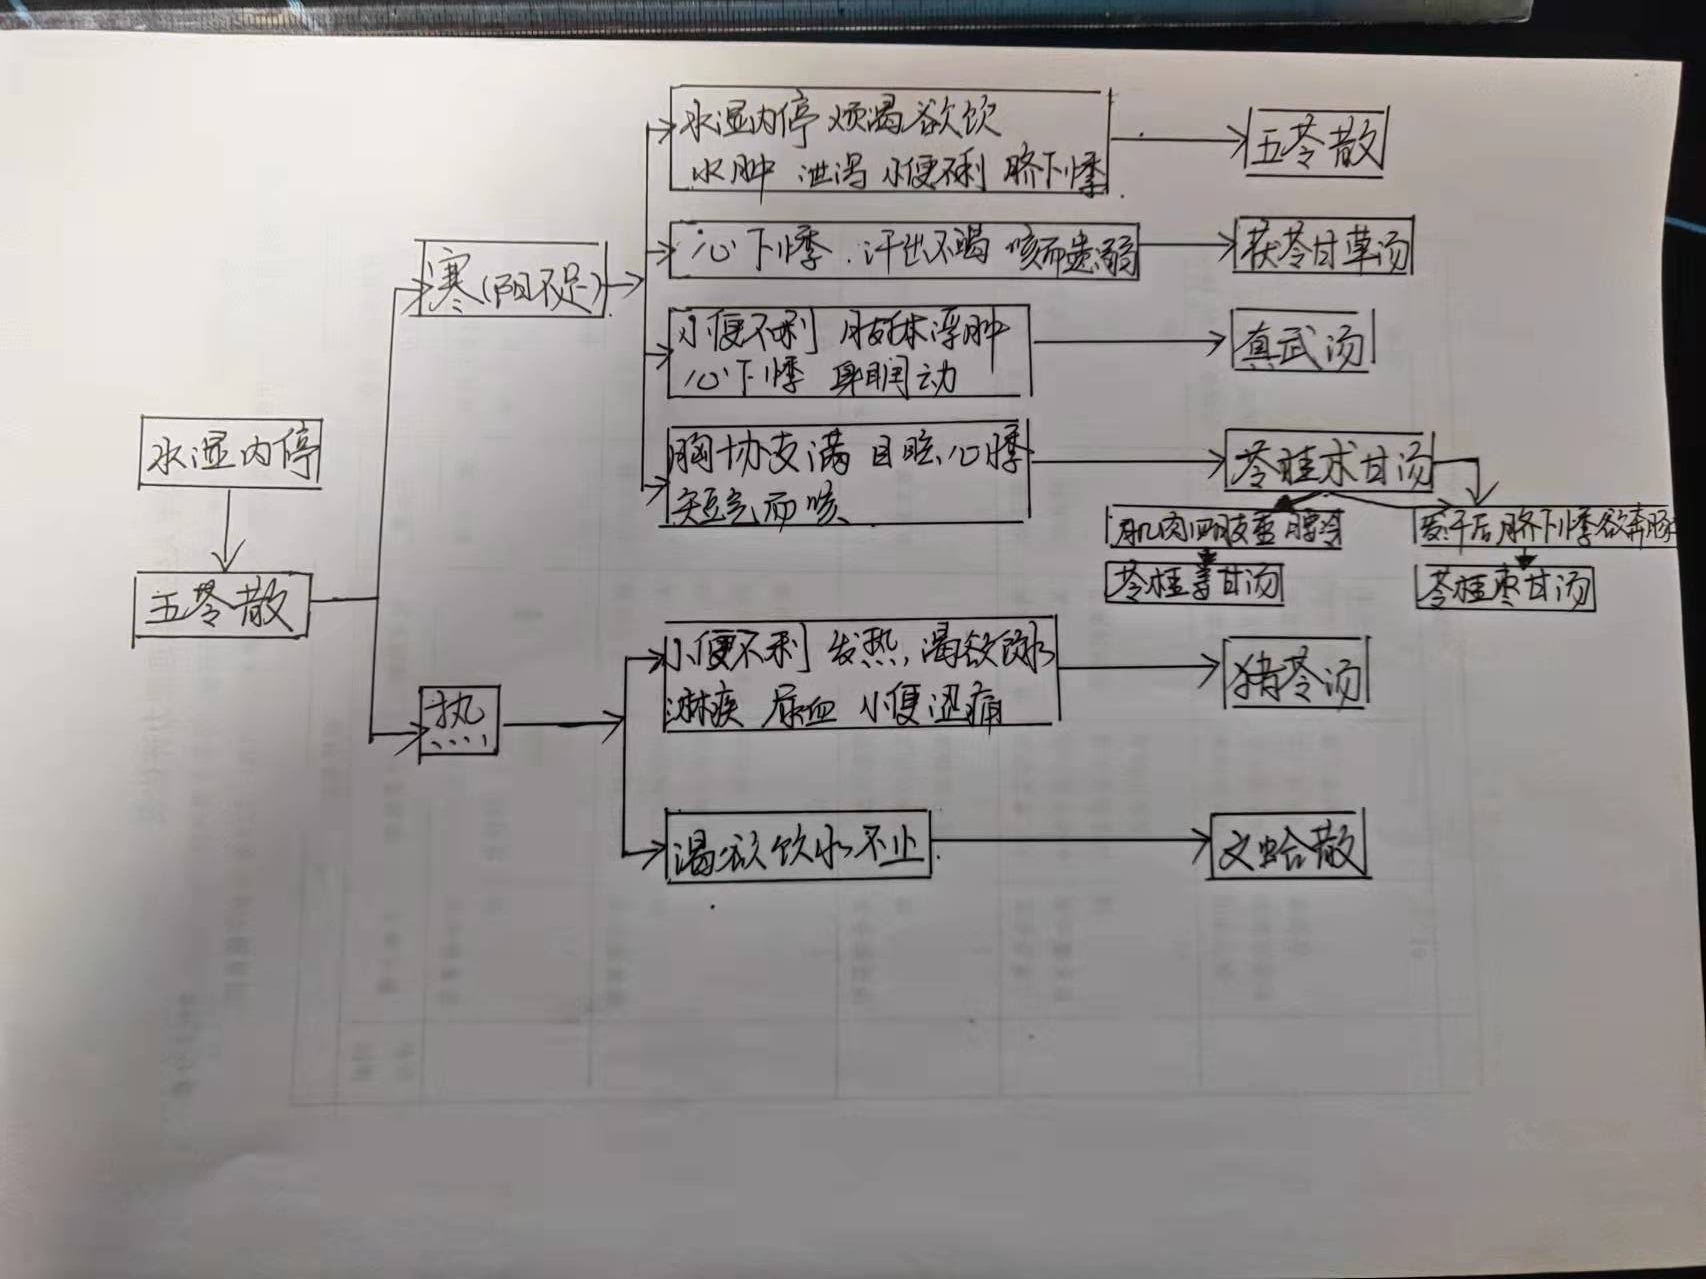 水湿内停
五苓散
寒(阳不足)
热
水湿内停 烦渴欲饮
水肿 泄泻 小便不利 脐下悸
五苓散
心下悸.汗出不渴 咳而遗溺
茯苓甘草汤
小便不利 肢体浮肿
心下悸 身瞤动
真武汤
胸协支满 目眩心悸
短气而咳
苓桂术甘汤
肌肉四肢重 腰冷
苓桂姜甘汤
发汗后脐下悸欲奔豚
苓桂枣甘汤
小便不利 发热,渴欲饮水
淋疾 尿血 小便涩痛
猪苓汤
渴欲饮水不止
文蛤散